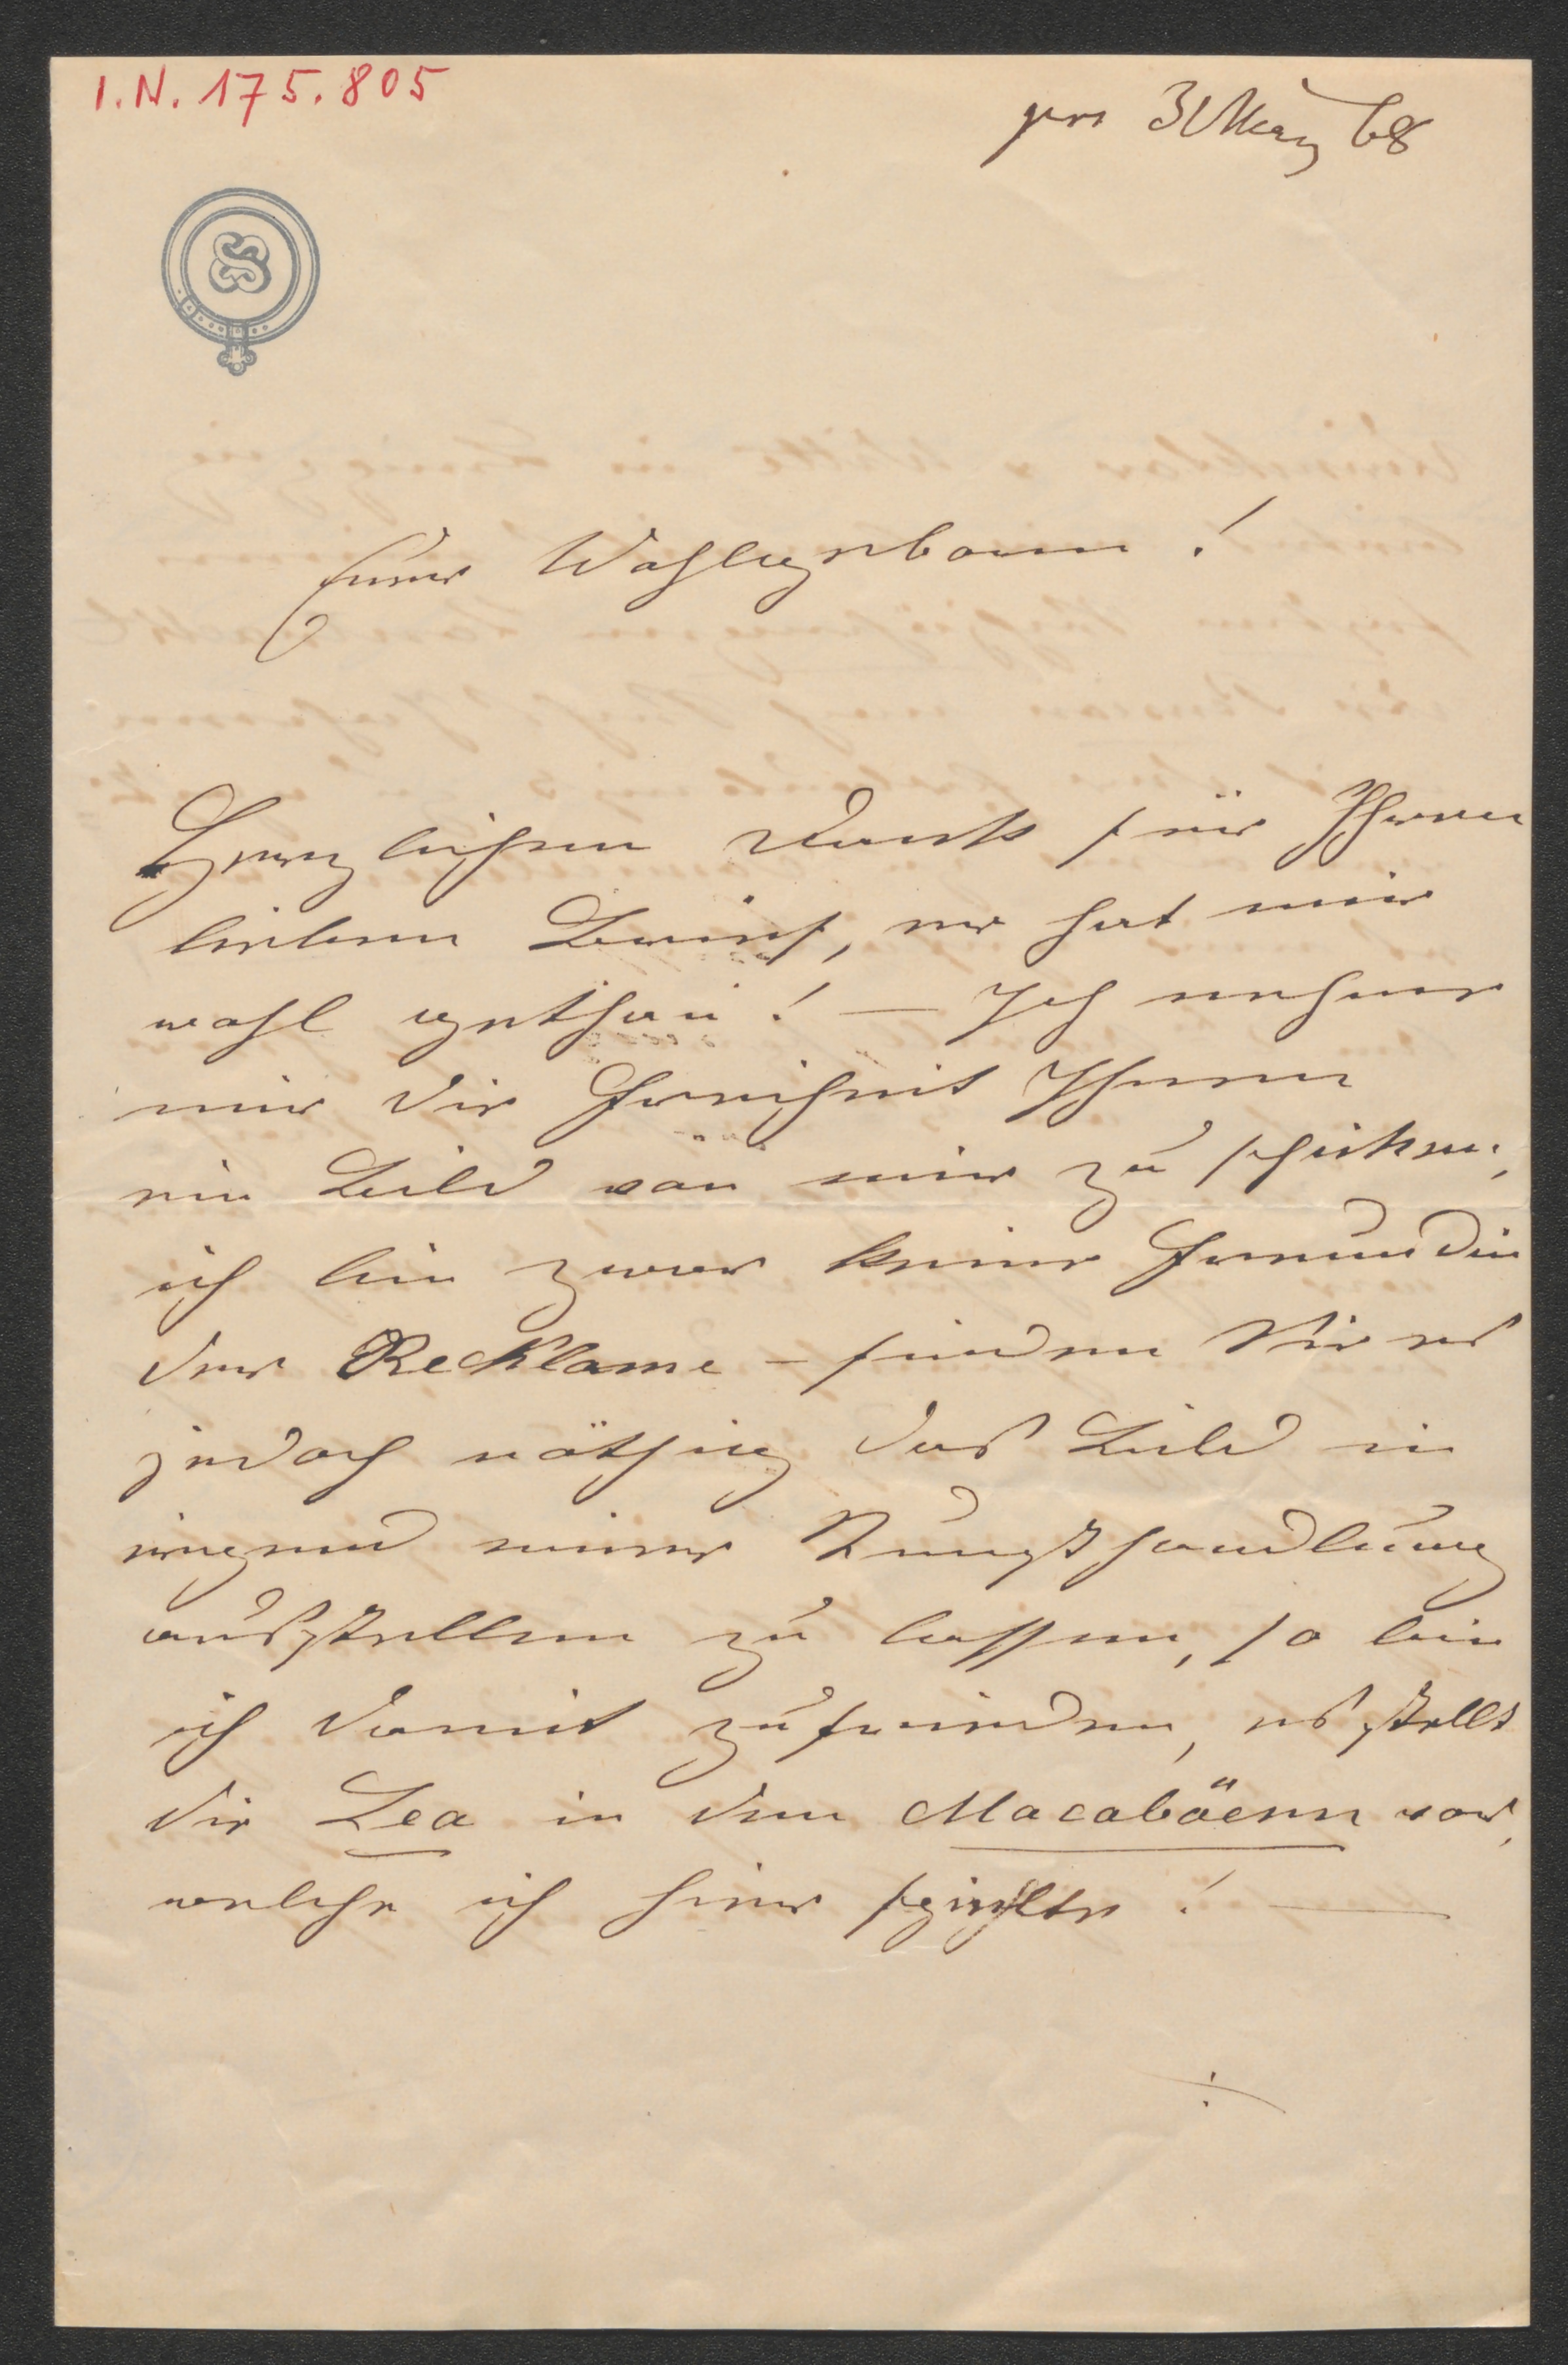 I.N. 175.805
prs 31 März 68
S
Euer Wohlgeboren!
Herzlichen Dank für Ihren
lieben Brief, er hat mir
wohl gethan! — Ich nehme
mir die Freiheit Ihnen
ein Bild von mir zu schicken,
ich bin zwar keine Freundin
der Recklame – finden Sie es
jedoch nöthig das Bild in
irgend einer Kunsthandlung
ausstellen zu lassen, so bin
ich damit zufrieden, es stellt
die Lea in den Macabäern vor,
welche ich hier spielte! —